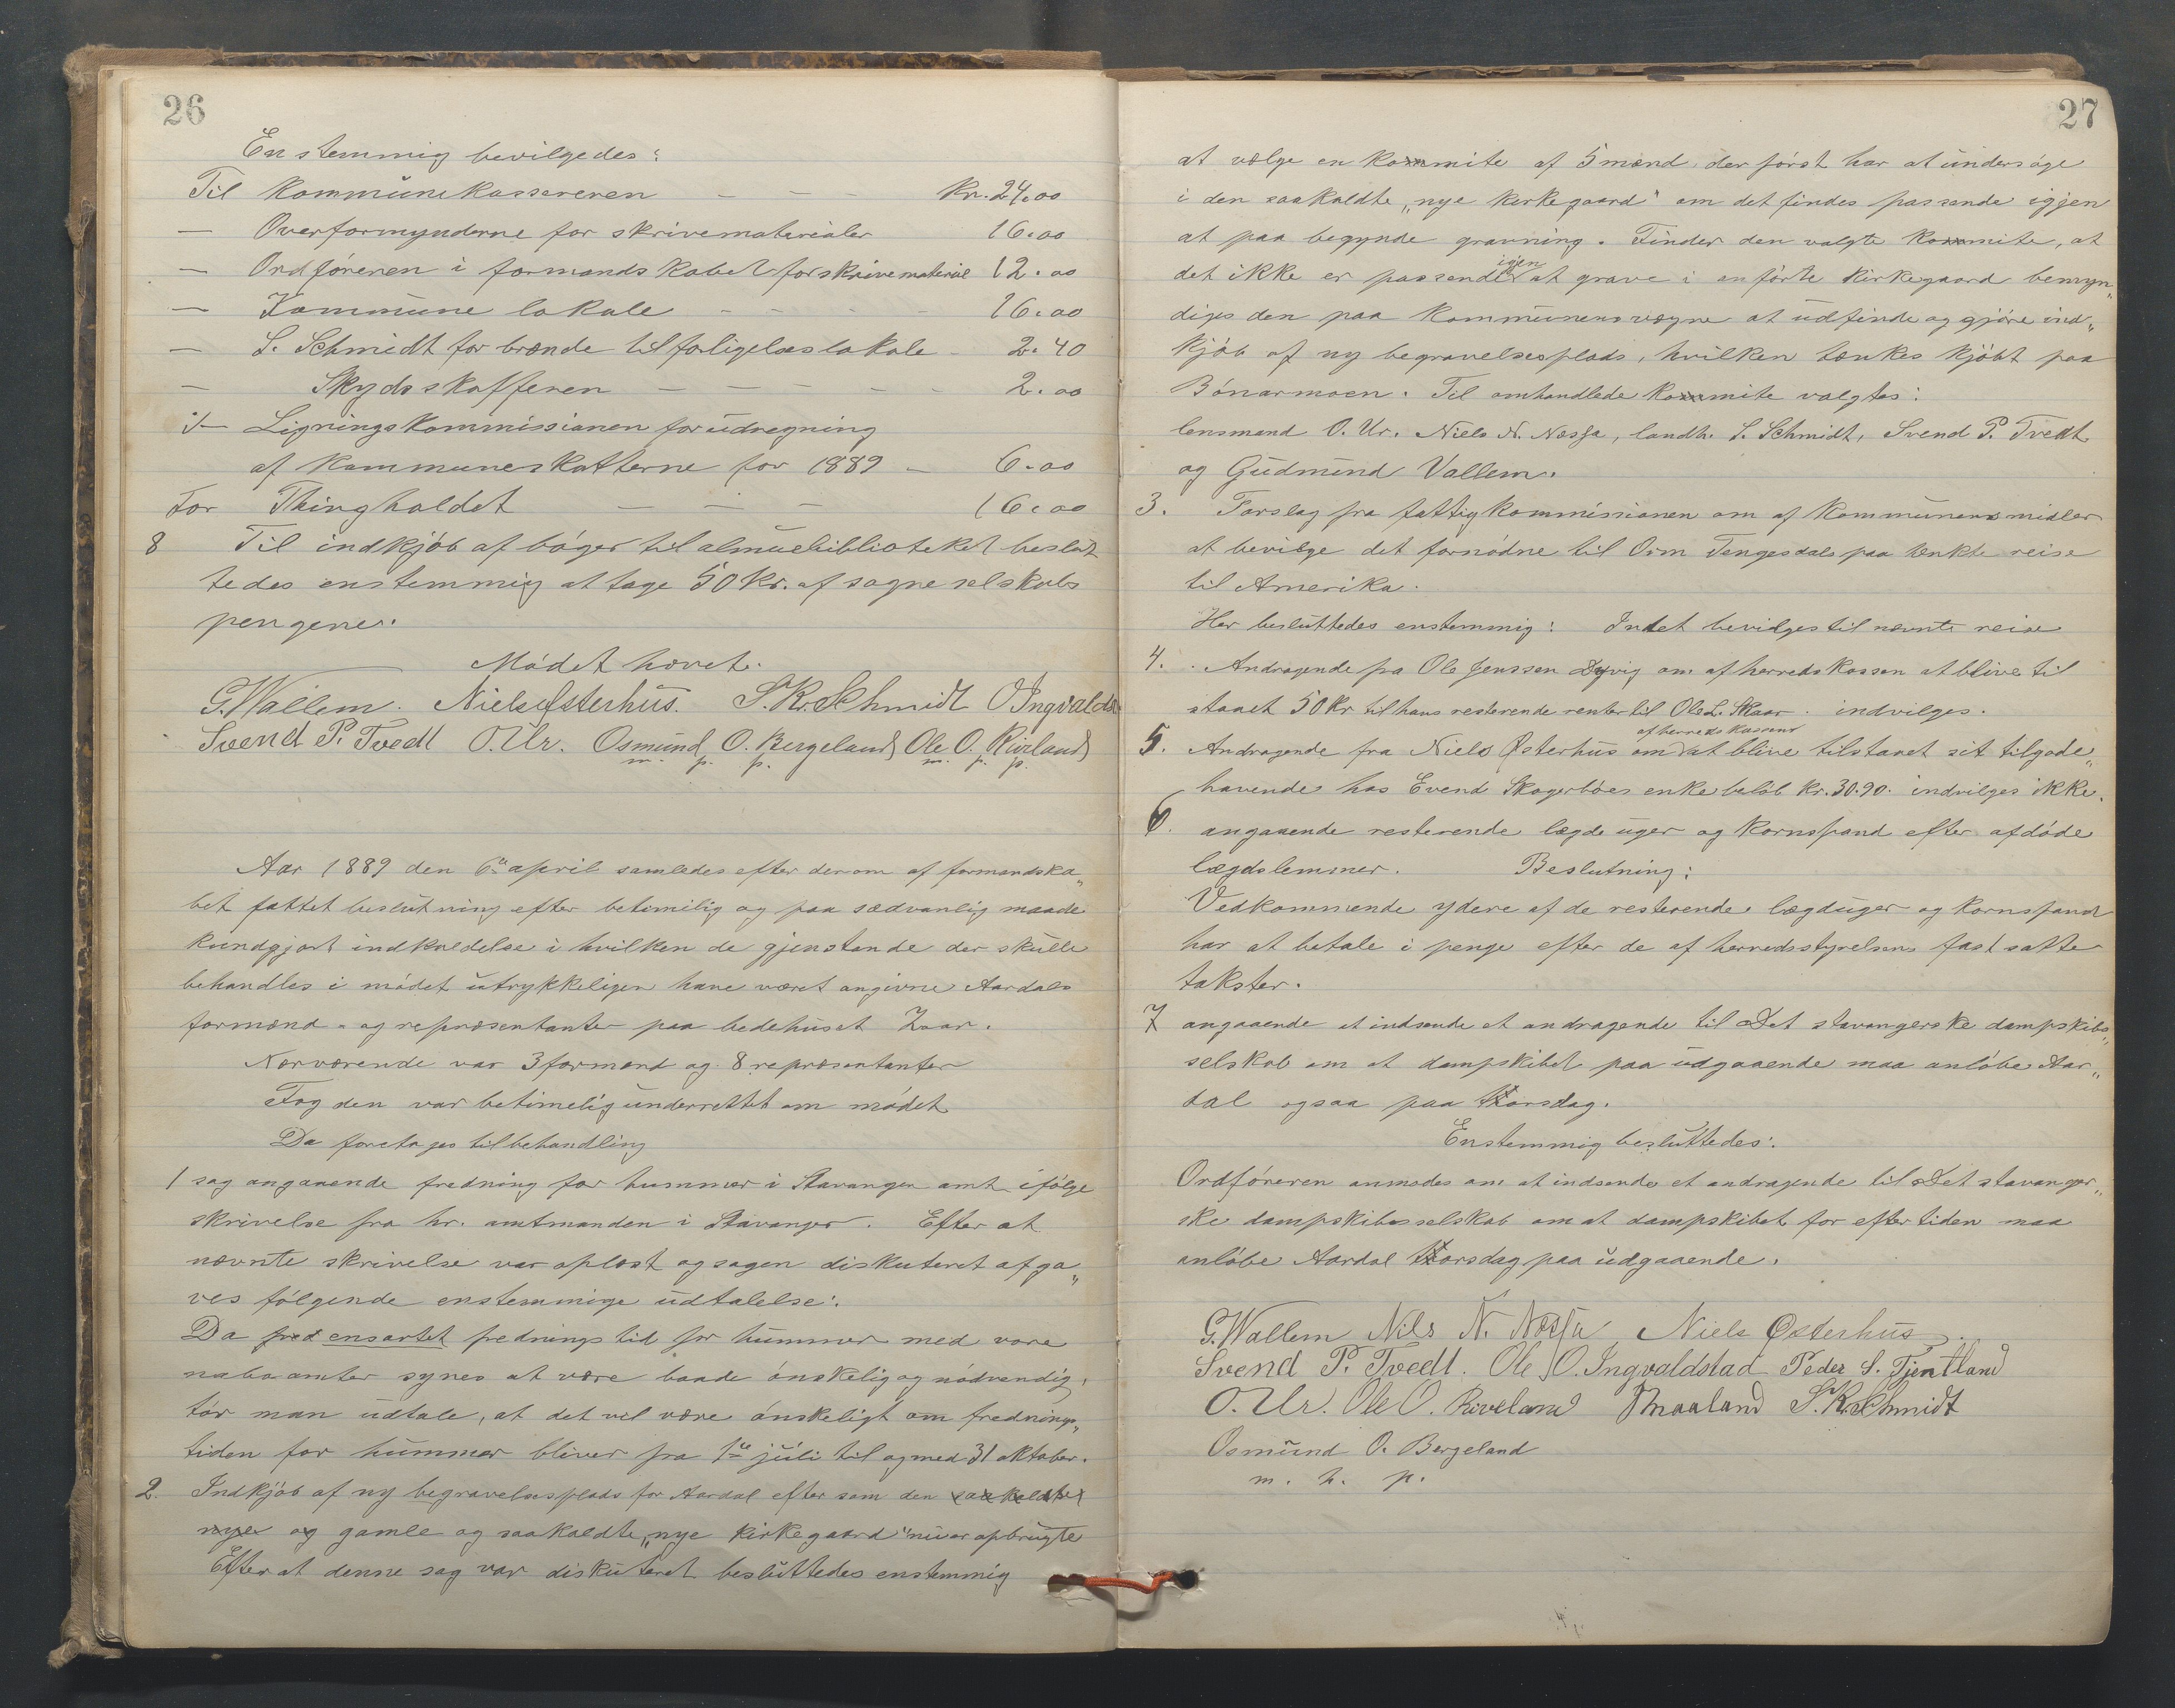 26
Enstemmig bevilgedes:
Til Kommunekassereren — — — Kr. 24.00
— Overformynderne for skrivematerialer 16.00
— Ordföreren i formandskabet for skrivemateriale 12.00
— Kommune lokale - - - - 16.00
— S. Schmidt for brænde til forligelseslokale - 2.40
— Skydsskafferen — — — — - 2.00
— Ligningskommissionen for udregning
af kommuneskatterne for 1889 — 6.00
For Thingholdet — — — 16.00
8 Til indkjöb af böger til almuebiblioteket beslut
tedes enstemmig at tage 50 Kr. af sogneselskabs
pengene.
Mödet hævet.
G. Wallem. Niels Østerhus. S. K. Schmidt O Ingvalds
Svend P. Tvedt O. Ur. Osmund O. Bergeland Ole O. Riveland
m. p. p. m. p. p.
Aar 1889 den 6te april samledes efter derom af formandska„
bet fattet beslutning efter betimilig og paa sædvanlig maade
kundgjort indkaldelse i hvilken de gjenstande der skulle
behandles i mödet utrykkeligen have været angivne Aardals
formænd- og repræsentanter paa bedehuset Zoar.
Nærværende var 3 formænd og 8 repræsentanter
Fogden var betimelig underrettet om mödet
Da foretoges til behandling
1 sag angaaende fredning for hummer i Stavanger amt ifölge
skrivelse fra hr. amtmanden i Stavanger. Efter at
nævnte skrivelse var oplæst og sagen diskuteret afga„
ves fölgende enstemmige udtalelse:
Da fred ensartet fredningstid for hummer med vore
naboamter synes at være baade önskelig og nödvendig,
tör man udtale, at det vil være önskeligt om frednings„
tiden for hummer bliver fra 1te juli til og med 31 oktober.
2. Indkjöb af ny begravelsesplads for Aardal efter som den saakaldte
nye og gamle og saakaldte „nye kirkegaard“ nu er opbrugte
Efter at denne sag var diskuteret besluttedes enstemmig
27
at vælge en kommite af 5 mænd, der först har at undersöge
i den saakaldte „nye kirkegaard“ om det findes passende igjen
at paa begynde gravning. Finder den valgte kommite, at
igjen
det ikke er passende at grave i anförte kirkegaard bemyn„
diges den paa Kommunens vægne at udfinde og gjöre ind„
kjöb af ny begravelsesplads, hvilken tænkes kjöbt paa
Bönarmoen. Til omhandlede kommite valgtes:
lensmand O. Ur. Niels N. Nessa, landh. S. Schmidt, Svend P. Tvedt
og Gudmund Vallem.
3. Forslag fra fattigkommissionen om af Kommunens midler
at bevilge det fornödne til Orm Tengesdals paa tænkte reise
til Amerika.
Her besluttedes enstemmig: Intet bevilges til nævnte reise
4. Andragende fra Ole Jenssen Dyvig om af herredskassen at blive til
staaet 50 Kr til hans resterende renter til Ole L. Skaar. indvilges.
af herreds kassens
5. Andragende fra Niels Østerhus om at blive tilstaaet sit tilgode„
havende hos Evend Skogerböes enke belöb Kr. 30.90. indvilges ikke.
6. angaaende resterende lægdeuger og Kornspand efter afdöde
lægdslemmer. Beslutning:
Vedkommende ydere af de resterende lægduger og kornspand
har at betale i penge efter de af herredsstyrelsen fastsatte
takster.
7 angaaende at indsende et andragende til Det stavangerske dampskibs„
selskab om at dampskibet paa udgaaende maa anlöbe Aar„
dal ogsaa paa torsdag.
Enstemmig besluttedes:
Ordföreren anmodes om at indsende et andragende til Det stavanger„
ske dampskibsselskab om at dampskibet for eftertiden maa
anlöbe Aardal torsdag paa udgaaende.
G. Wallem Nils N. Nessa Niels Østerhus
Svend P. Tvedt. Ole O. Ingvaldstad Peder S. Tjentland
O. Ur. Ole O. Riveland Maaland S. K. Schmidt
Osmund O. Bergeland
m. h. p.